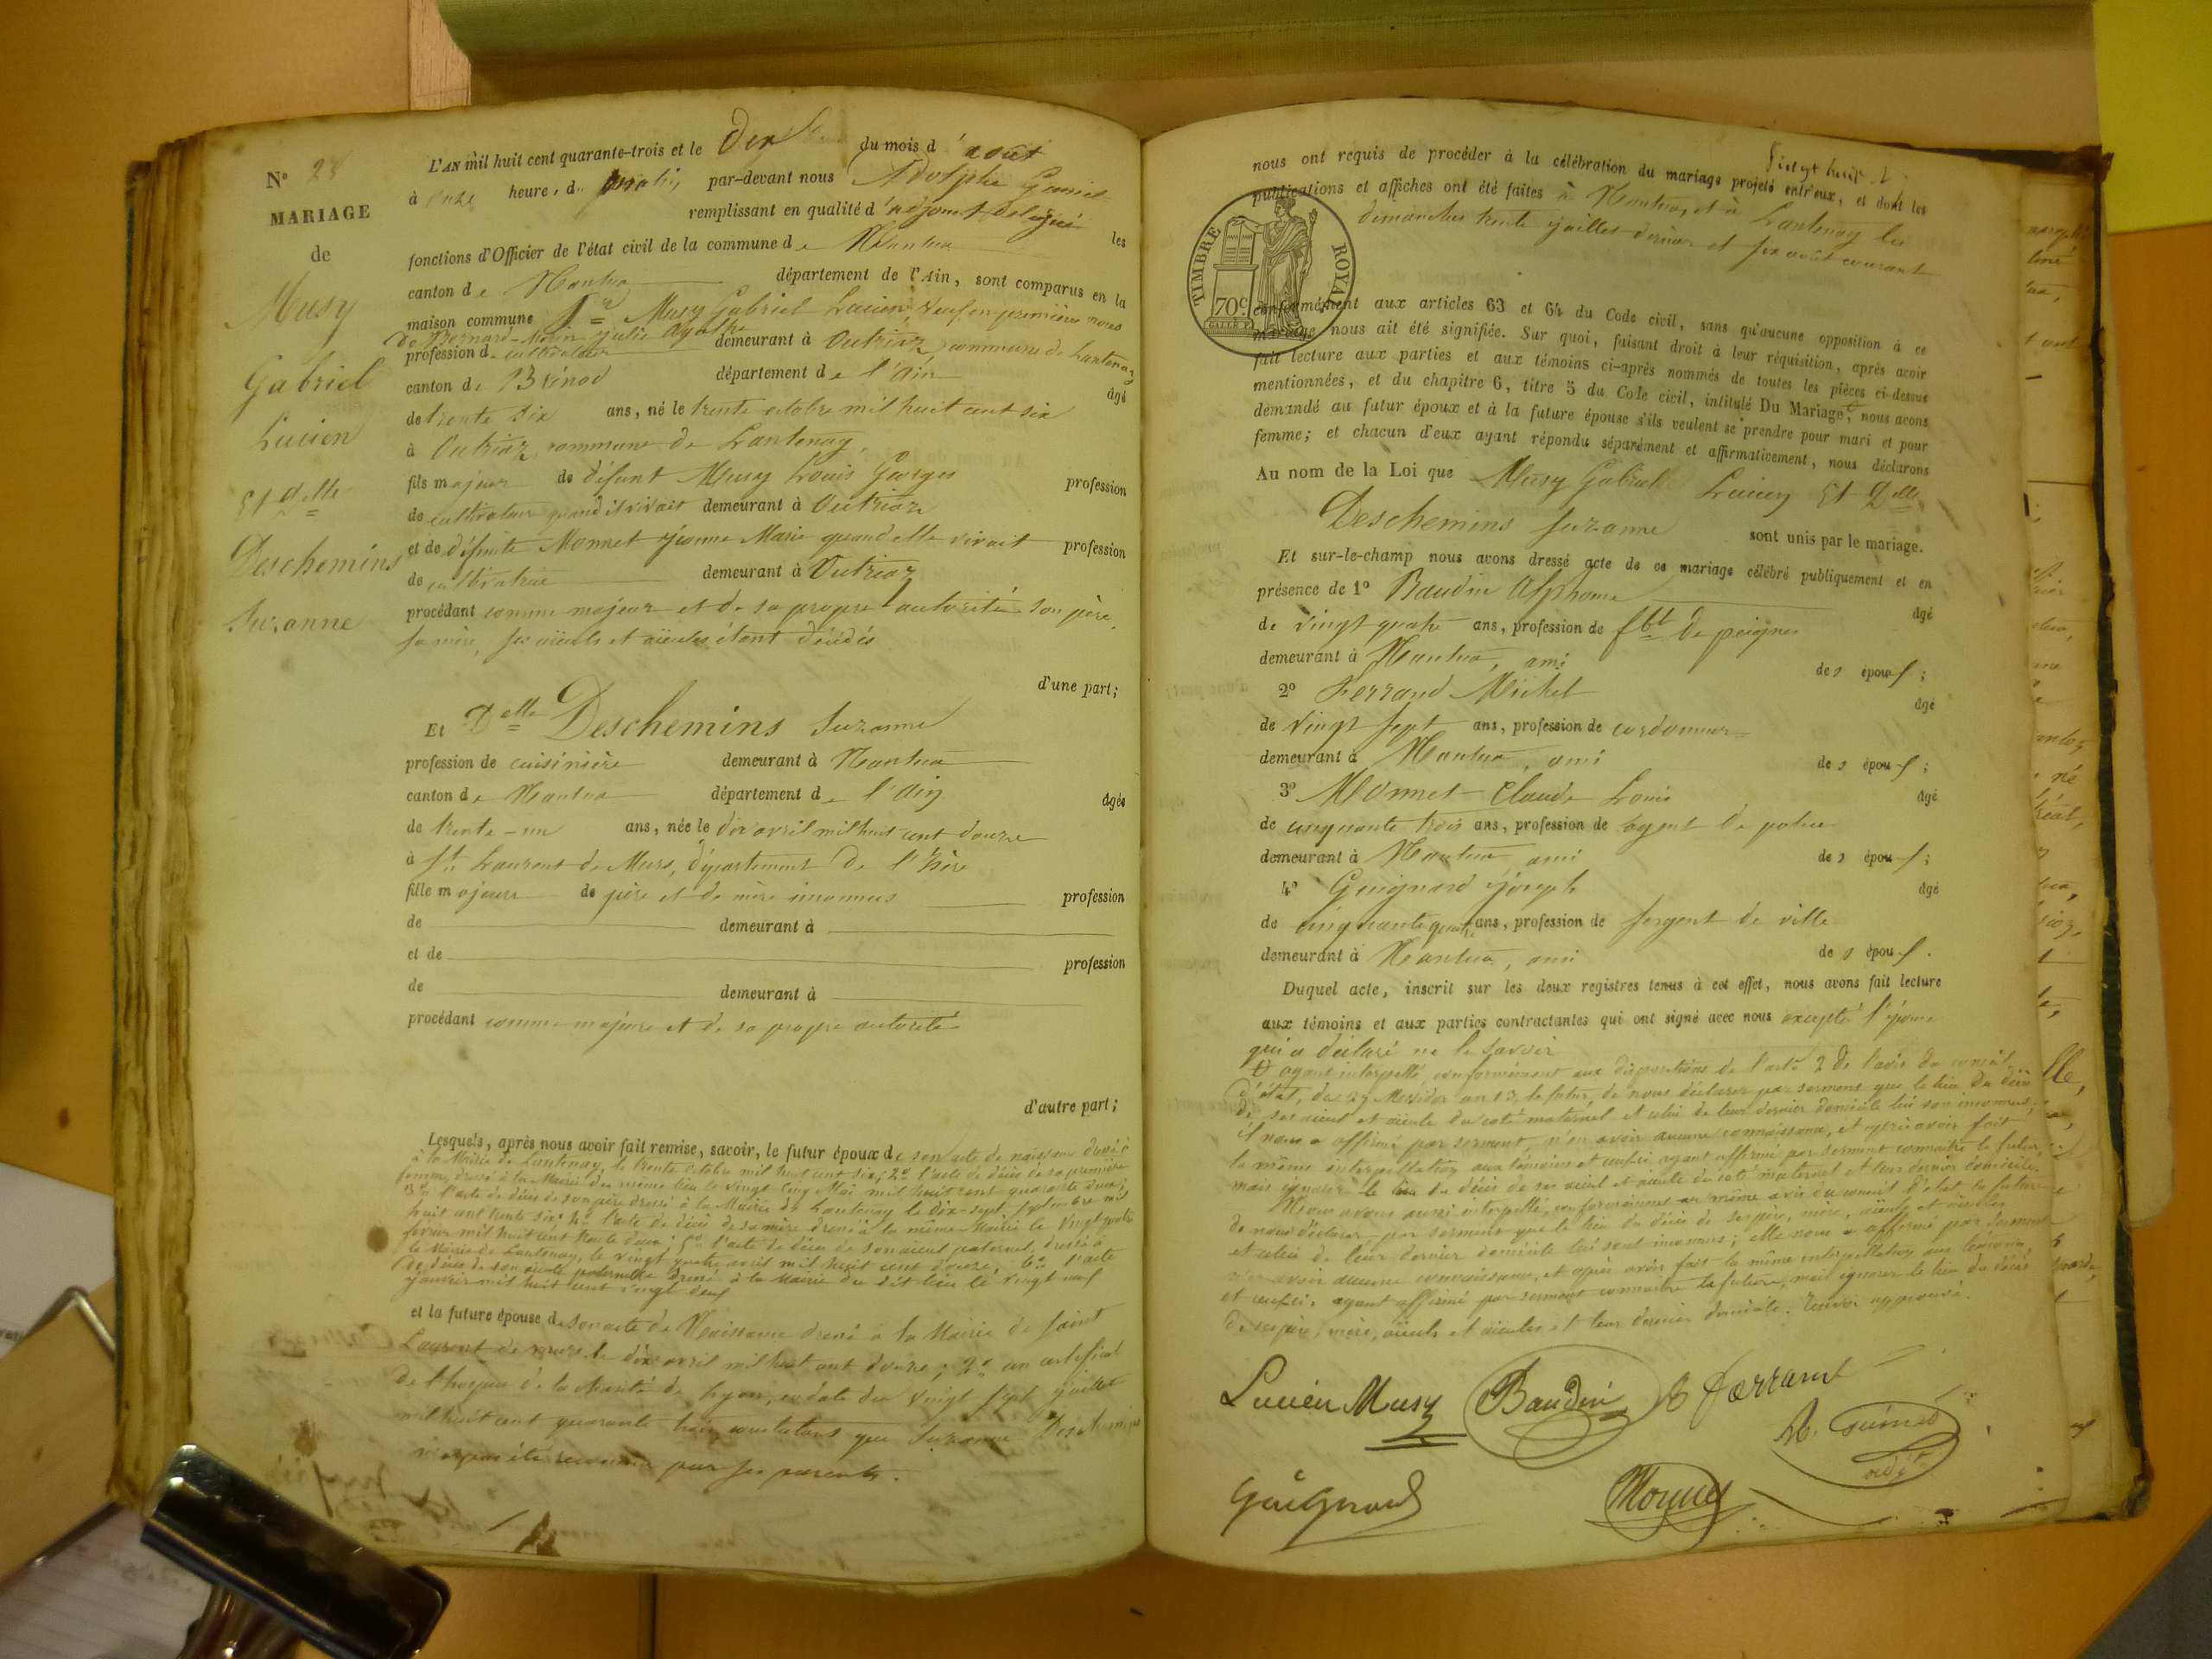 N° 28
MARIAGE
de
Musy
Gabriel
Lucien
Et d.elle
Deschemins
Suzanne
L'AN mil huit cent quarante-trois et le dix du mois d'août
à onze heures du matin, par-devant nous Adolphe
remplissant en qualité d'adjoint délégué les
fonctions d'Officier de l'état civil de la commune de Nantua
canton de Nantua département de l'Ain, sont comparus en la
maison commune Sr Musy Gabriel Lucien, veuf en premières noces
de Bernard-Morin Julie Agathe
profession de cultivateur demeurant à Outriaz, commune de Lantenay
canton de Brénod département de l'Ain âgé
de trente six ans, né le trente octobre mil huit cent six
à Outriaz commune de Lantenay
fils majeur de défunt Musy Louis Georges profession
de cultivateur quand il vivait demeurant à Outriaz
et de défunte Monnet Jeanne Marie quand elle vivait profession
de cultivatrice demeurant à Outriaz
procédant comme majeur et de sa propre autorité son père,
sa mère, ses aïeuls et aïeules étant décédés
d'une part;
Et Delle Deschemins Suzanne
profession de cuisinière demeurant à Nantua
canton de Nantua département de l'Ain âgée
de trente-un ans, née le dix avril mil huit cent douze
à St Laurent de Mure, département de l'Isère
fille majeure de père et de mère inconnus profession
de demeurant à
et de profession
de demeurant à
procédant comme majeure et de sa propre autorité
d'autre part;
Lesquels, après nous avoir fait remise, savoir, le futur époux de son acte de naissance dressé
à la Mairie de Lantenay, le trente octobre mil huit cent six; 2° l'acte de décès de sa première
femme, dressé à la Mairie du même lieu le vingt cinq Mai mil huit cent quarante deux;
3° l'acte de décès de son père dressé à la Mairie de Lantenay le dix-sept septembre mil
huit cent trente six; 4° l'acte de décès de sa mère dressé à la même Mairie le vingt quatre
février mil huit cent trente deux; 5° l'acte de décès de son aïeul paternel, dressé à
la Mairie de Lantenay, le vingt quatre avril mil huit cent douze; 6° l'acte
de décès de son aïeule paternelle dressé à la Mairie du dit lieu le vingt neuf
janvier mil huit cent vingt deux
et la future épouse de son acte de Naissance dressé à la Mairie de Saint
Laurent de mure le dix avril mil huit cent douze; 2° un certificat
de l'hospice de la Charité de Lyon, en date du vingt sept juillet
mil huit cent quarante trois constatant que Suzanne Deschemins
n'a pas été reconnue par ses parents.
nous ont requis de procéder à la célébration du mariage projeté entr'eux, et dont les
publications et affiches ont été faites à Nantua, et à Lantenay les
dimanches trente juillet dernier et six août courant
TIMBRE ROYAL
70 c.
conformément aux articles 63 et 64 du Code civil, sans qu'aucune opposition à ce
mariage nous ait été signifiée. Sur quoi, faisant droit à leur réquisition, après avoir
fait lecture aux parties et aux témoins ci-après nommés de toutes les pièces ci-dessus
mentionnées, et du chapitre 6, titre 5 du Code civil, intitulé Du Mariage, nous avons
demandé au futur époux et à la future épouse s'ils veulent se prendre pour mari et pour
femme; et chacun d'eux ayant répondu séparément et affirmativement, nous déclarons
Au nom de la Loi que Musy Gabriel Lucien Et Delle
Deschemins Suzanne sont unis par le mariage.
Et sur-le-champ nous avons dressé acte de ce mariage célébré publiquement et en
présence de 1° Baudin Alphonse âgé
de vingt quatre ans, profession de fbt de peignes
demeurant à Nantua, ami des époux;
2° Ferrand Michel âgé
de vingt sept ans, profession de cordonnier
demeurant à Nantua, ami des époux;
3° Monnet Claude Louis âgé
de cinquante trois ans, profession de agent de police
demeurant à Nantua ami des époux;
4° Guignard Joseph âgé
de cinquante quatre ans, profession de sergent de ville
demeurant à Nantua, ami des époux.
Duquel acte, inscrit sur les deux registres tenus à cet effet, nous avons fait lecture
aux témoins et aux parties contractantes qui ont signé avec nous excepté l'épouse
qui a déclaré ne le savoir
ayant interpellé, conformément aux dispositions de l'acte 2 de l'avis du conseil
d'état, du 27 Messidor an 13, le futur, de nous déclarer par serment que le lieu du décès
de ses aïeul et aïeule du coté maternel et celui de leur dernier domicile lui son inconnus;
il nous a affirmé par serment, n'en avoir aucune connaissance, et après avoir fait
la même interpellation aux témoins et ceux-ci ayant affirmé par serment connaitre le futur,
mais ignorer le lieu du décès de ses aïeul et aïeule du coté maternel et leur dernier domicile.
Nous avons aussi interpellé, conformément au même avis du conseil d'état la future
de nous déclarer par serment que le lieu du décès de ses père, mère, aïeuls et aïeules
et celui de leur dernier domicile lui sont inconnus; elle nous a affirmé par serment
n'en avoir aucune connaissance, et après avoir fait la même interpellation aux témoins,
et ceux-ci ayant affirmé par serment connaitre la future, mais ignorer le lieu du décès
de ses père, mère, aïeuls et aïeules et leur dernier domicile. Renvoi approuvé.
Lucien Musy Baudin Ferrand
Guignard Monnet